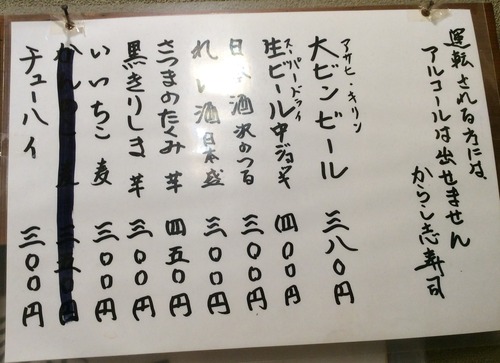 運転される方には
アルコールは出せません
からし志寿司
アサヒ・キリン
大ビンビール 三八〇円
スーパードライ
生ビール中ジョッキ 四〇〇円
日本酒 沢のつる 三〇〇円
れい酒 日本盛 三〇〇円
さつまのたくみ 芋 四五〇円
黒きりしま 芋 三〇〇円
いいちこ 麦 三〇〇円
チューハイ 三〇〇円